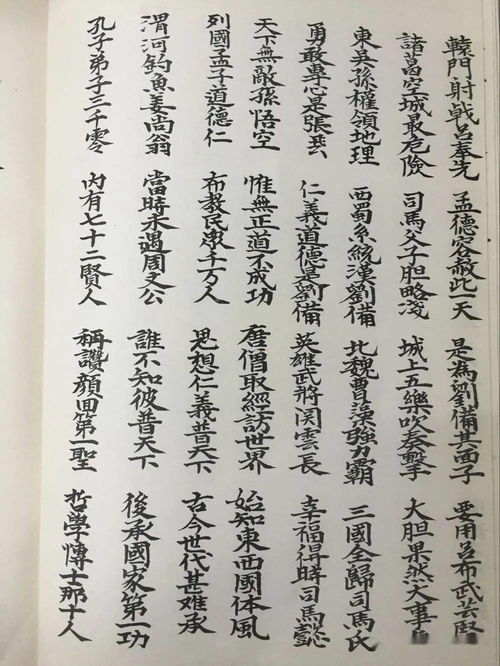 轅門射戟呂奉先 孟德容敵此一天 是為劉備其面子 要用呂布武芸
諸葛空城最危險 司馬父子胆略淺 城上五樂吹奏擊 大胆果然天事
東吳孫權領地理 西蜀系統漢劉備 北魏曹藻強力霸 三國全歸司馬氏
勇敢專心是張飛 仁義道德是劉備 英雄武將関雲長 幸福昇時司馬懿
天下無敵孫悟空 惟無正道不成功 唐僧取經訪世界 始知東西國体風
列國孟子道德仁 布教民衆千万人 思想仁義普天下 古今世代甚难承
渭河釣魚姜尚翁 當時未遇周文公 誰不知彼普天下 後承國家第一功
孔子弟子三千零 內有七十二賢人 稱讚顏回第一聖 哲學博士那十人